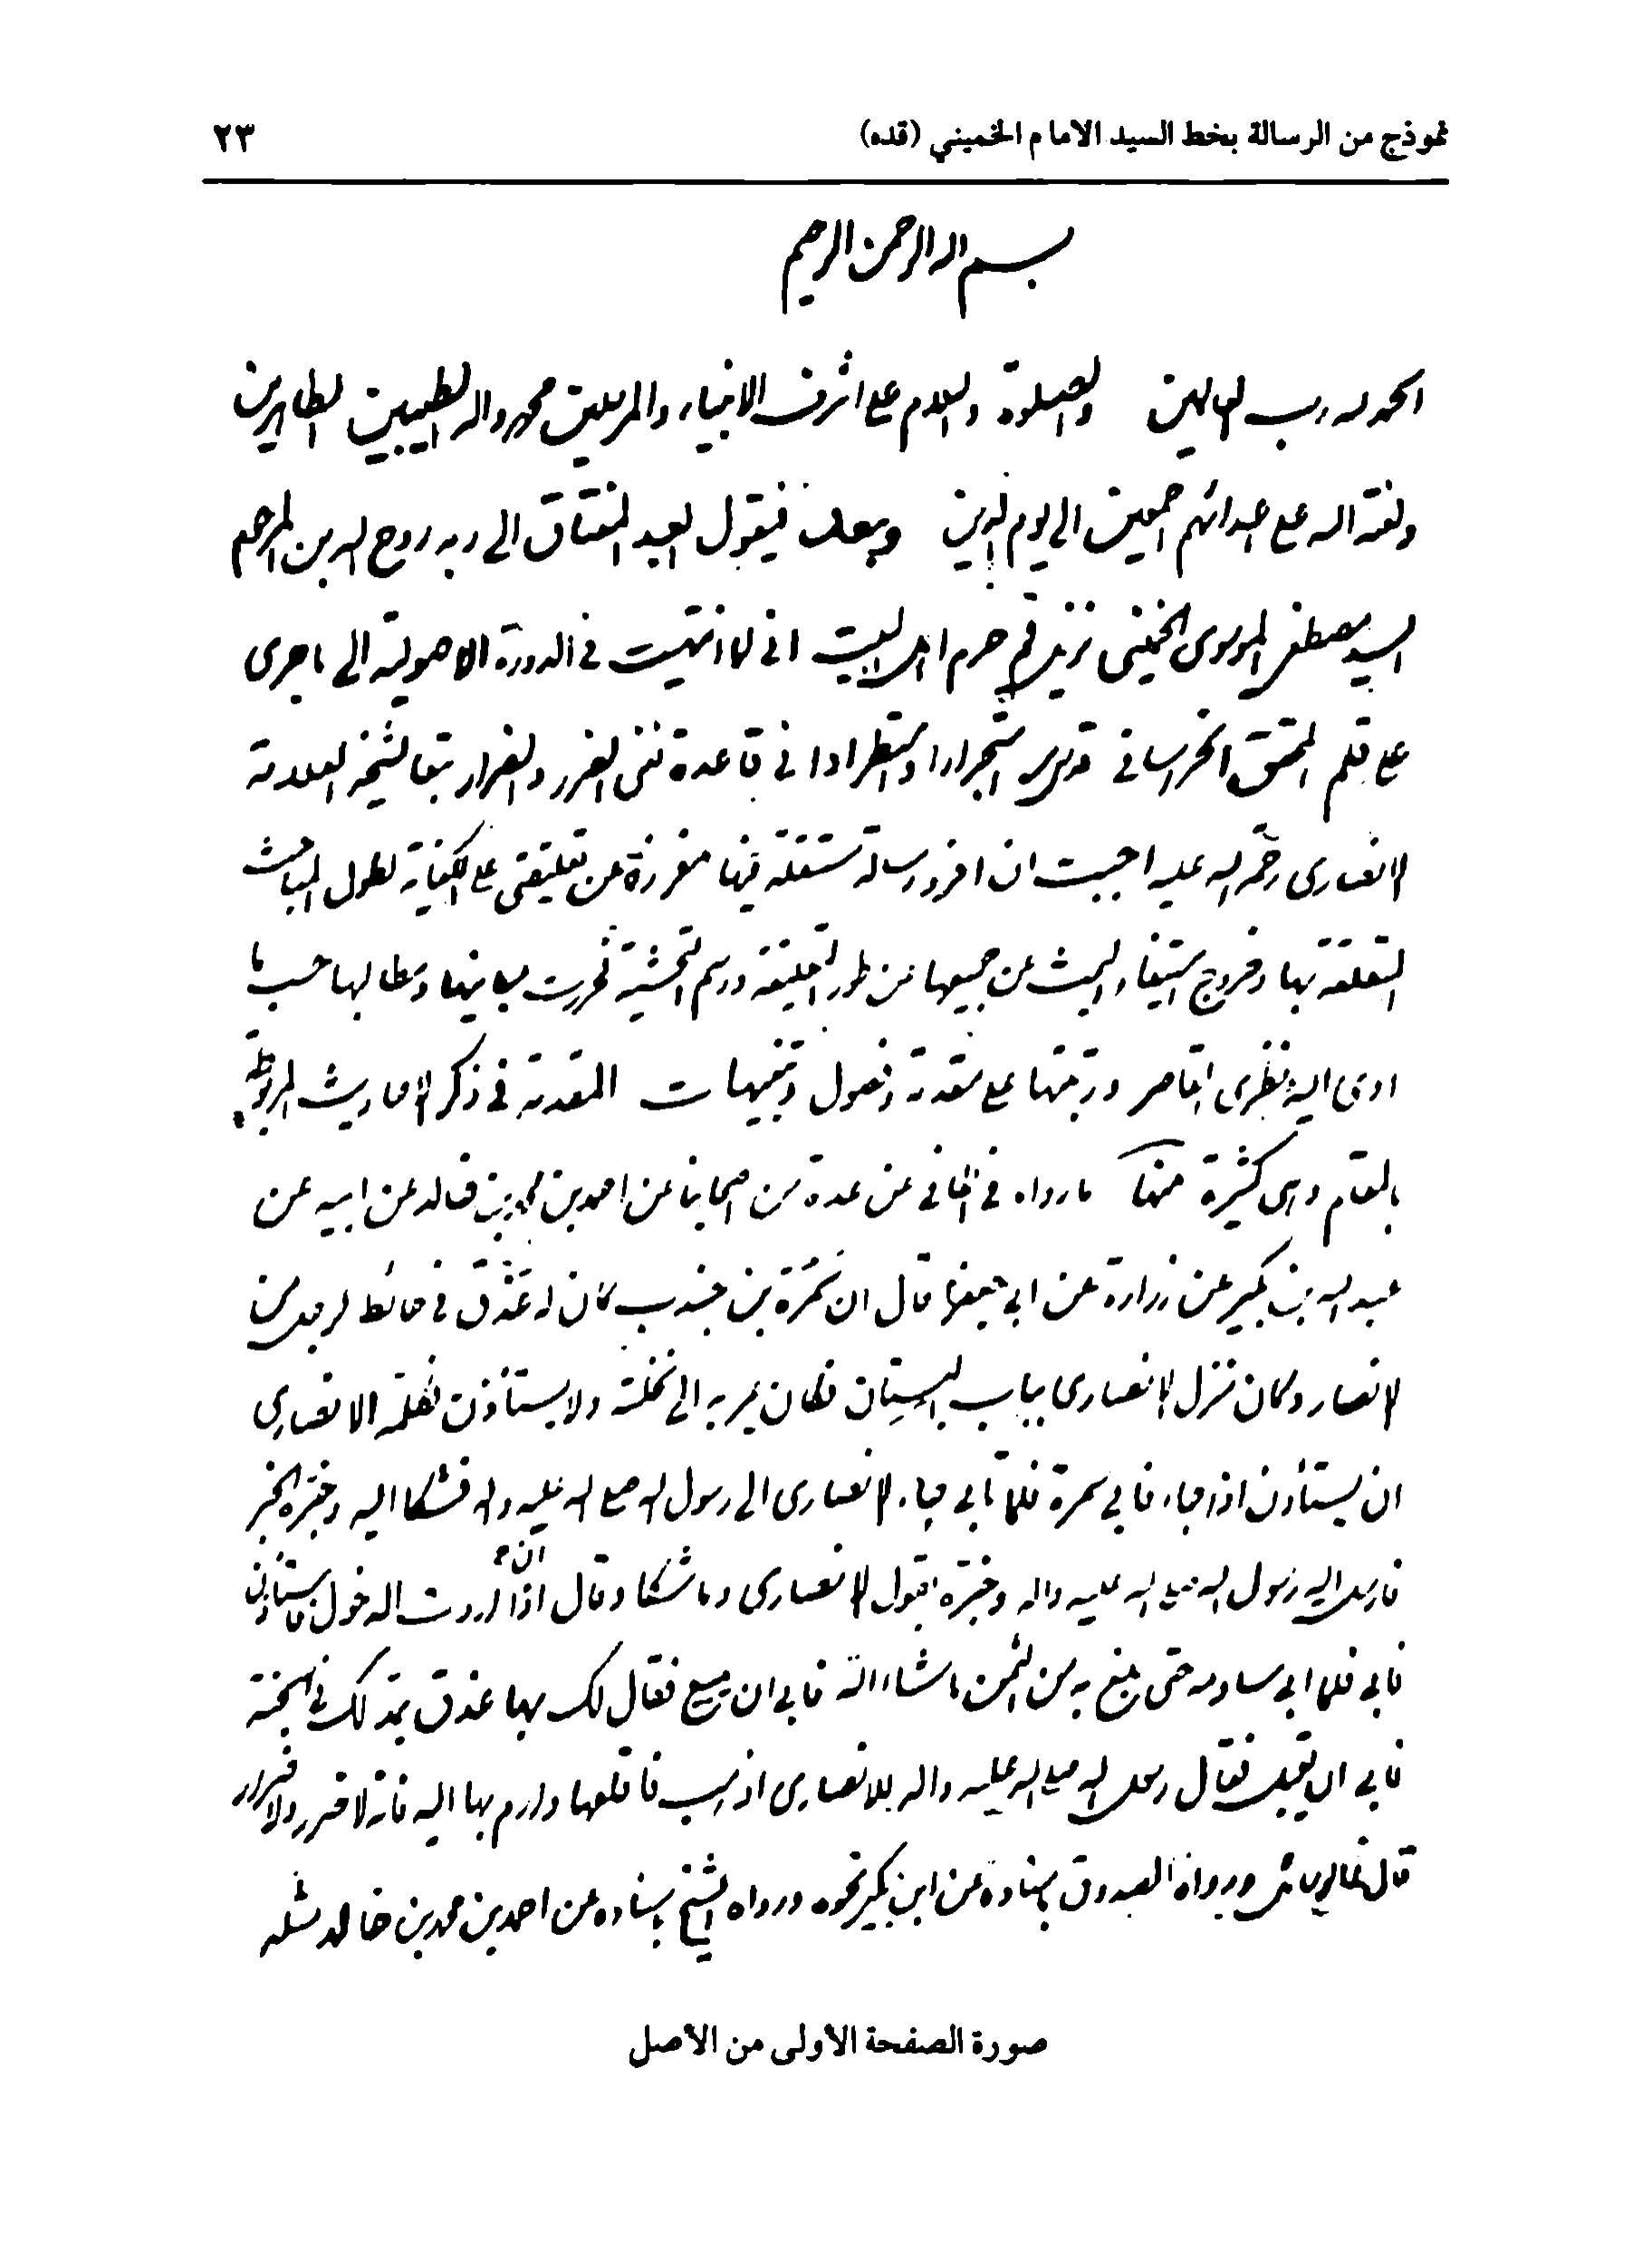 نموذج من الرسالة بخط السيد الامام الخميني (قده) ٢٣
بسم الله الرحمن الرحيم
الحمد لله رب العالمين والصلوة والسلام على اشرف الانبياء والمرسلين محمد واله الطيبين الطاهرين
ولعنة الله على اعدائهم اجمعين الى يوم الدين وبعد فيقول العبد المفتاق الى ربه روح الله بن المرحوم
السيد مصطفى الموسوى الخمينى نزيل قم حرم اهل البيت انى لما انتهيت فى الدورة الاصولية الى ما جرى
على قلم المحقق الخراسانى قدس سره استجرارا واستطرادا فى قاعدة نفى الضرر والضرار تبعا لشيخه العلامة
الانصارى رحمة الله عليه احببت ان افرد رسالة مستقلة فيها مفرزة عن تعليقتى على الكفاية لطول المباحث
المتعلقة بها وخروج استيفاء البحث عن جميعها عن طور التعليقة ورسم التحشية فحررت مبانيها ومطالبها حسب ما
ادى اليه نظرى القاصر ورتبتها على مقدمة وفصول وتنبيهات المقدمة فى ذكر الاحاديث المربوطة
بالمقام وهى كثيرة منها ما رواه فى الكافى عن عدة من اصحابنا عن احمد بن محمد بن خالد عن ابيه عن
عبد الله بن بكير عن زرارة عن ابى جعفر قال ان سمرة بن جندب كان له عذق فى حائط لرجل من
الانصار وكان منزل الانصارى بباب البستان فكان يمر به الى نخلته ولا يستأذن فكلمه الانصارى
ان يستأذن اذا جاء فابى سمرة فلما تابى جاء الانصارى الى رسول الله صلى الله عليه واله فشكا اليه وخبره الخبر
فارسل اليه رسول الله صلى الله عليه واله وخبره بقول الانصارى وما شكا وقال ان اذا اردت الدخول فاستأذن
فابى فلما ابى ساومه حتى بلغ به من الثمن ما شاء الله فابى ان يبيع فقال لك بها عذق يمد لك فى الجنة
فابى ان يقبل فقال رسول الله صلى الله عليه واله للانصارى اذهب فاقلعها وارم بها اليه فانه لا ضرر ولا ضرار
قال فى الوسائل ورواه الصدوق باسناده عن ابن بكير نحوه ورواه الشيخ باسناده عن احمد بن محمد بن خالد مثله
صورة الصفحة الاولى من الاصل